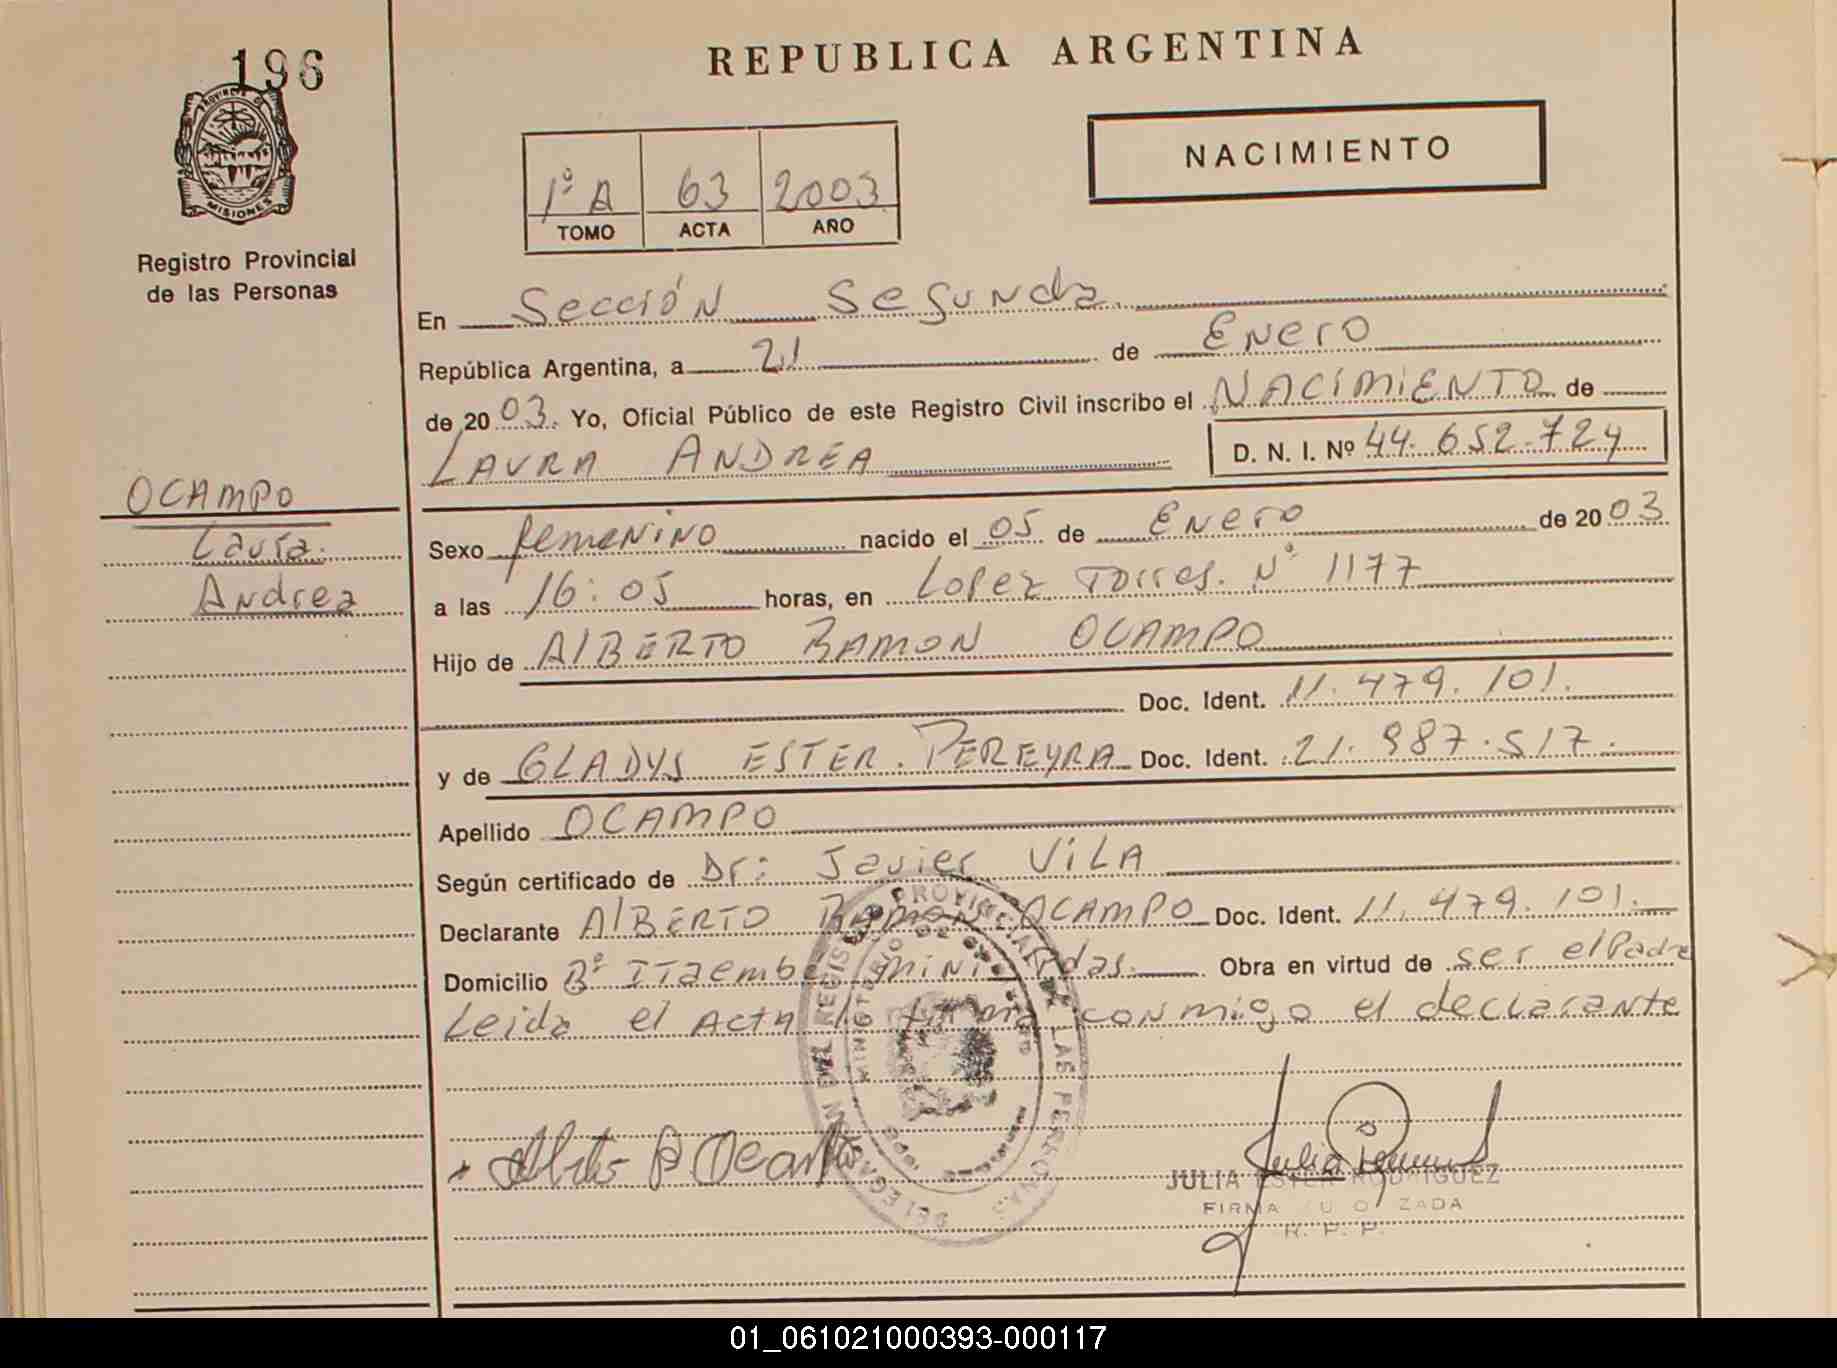 196
REPUBLICA ARGENTINA
NACIMIENTO
1º A 63 2003
TOMO ACTA AÑO
PROVINCIA DE MISIONES
Registro Provincial
de las Personas
En Sección Segunda
República Argentina, a 21 de Enero
de 2003. Yo, Oficial Público de este Registro Civil inscribo el NACIMIENTO de
LAURA ANDREA D. N. I. Nº 44.652.724
OCAMPO
Laura
Andrea
Sexo femenino nacido el 05 de Enero de 2003
a las 16:05 horas, en Lopez Torres. Nº 1177
Hijo de AlBERTO RAMON OCAMPO
Doc. Ident. 11.479.101.
y de GLADYS ESTER. PEREYRA Doc. Ident. 21.987.517.
Apellido OCAMPO
Según certificado de Dr: Javier VILA
Declarante AlBERTO RAMON OCAMPO Doc. Ident. 11.479.101.
Domicilio Bº Itaembe mini Pdas. Obra en virtud de ser el Padre
Leida el Acta la firma conmigo el declarante
Alberto R Ocampo
JULIA ESTER RODRIGUEZ
FIRMA AUTORIZADA
R. P. P.
01_061021000393-000117